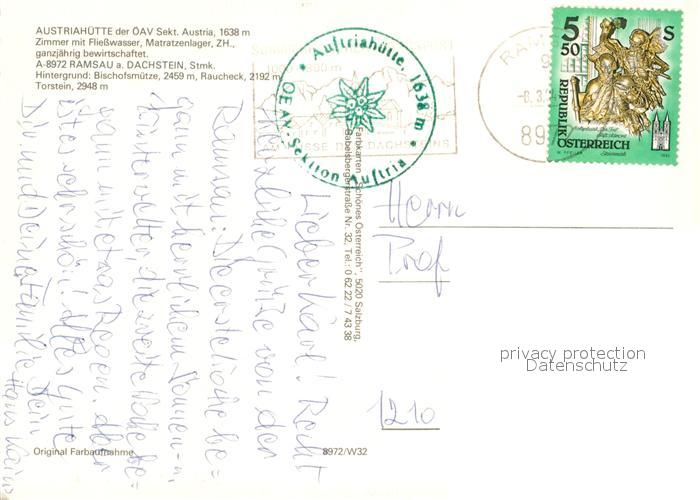 AUSTRIAHÜTTE der ÖAV Sekt. Austria, 1638 m
Zimmer mit Fließwasser, Matratzenlager, ZH.,
ganzjährig bewirtschaftet.
A-8972 RAMSAU a. DACHSTEIN, Stmk.
Hintergrund: Bischofsmütze, 2459 m, Raucheck, 2192 m
Torstein, 2948 m
Austriahütte, 1638 m
OEAV-Sektion Austria
5 50 S
REPUBLIK
ÖSTERREICH
Farbkarten "Schönes Österreich", 5020 Salzburg,
Babelsbergerstraße Nr. 32, Tel.: 0 62 22 / 7 43 38
Lieber Karl! Recht
herzliche Grüße von der
Ramsau. Die erste Woche be-
gann mit herrlichem Sonnen-
wetter, die zweite Woche be-
gann mit etwas Regen. Aber
ist es sehr schön! Alles Gute
Dir und Deiner Familie Dein
Herrn
Prof
1210
privacy protection
Datenschutz
Original Farbaufnahme
8972/W32